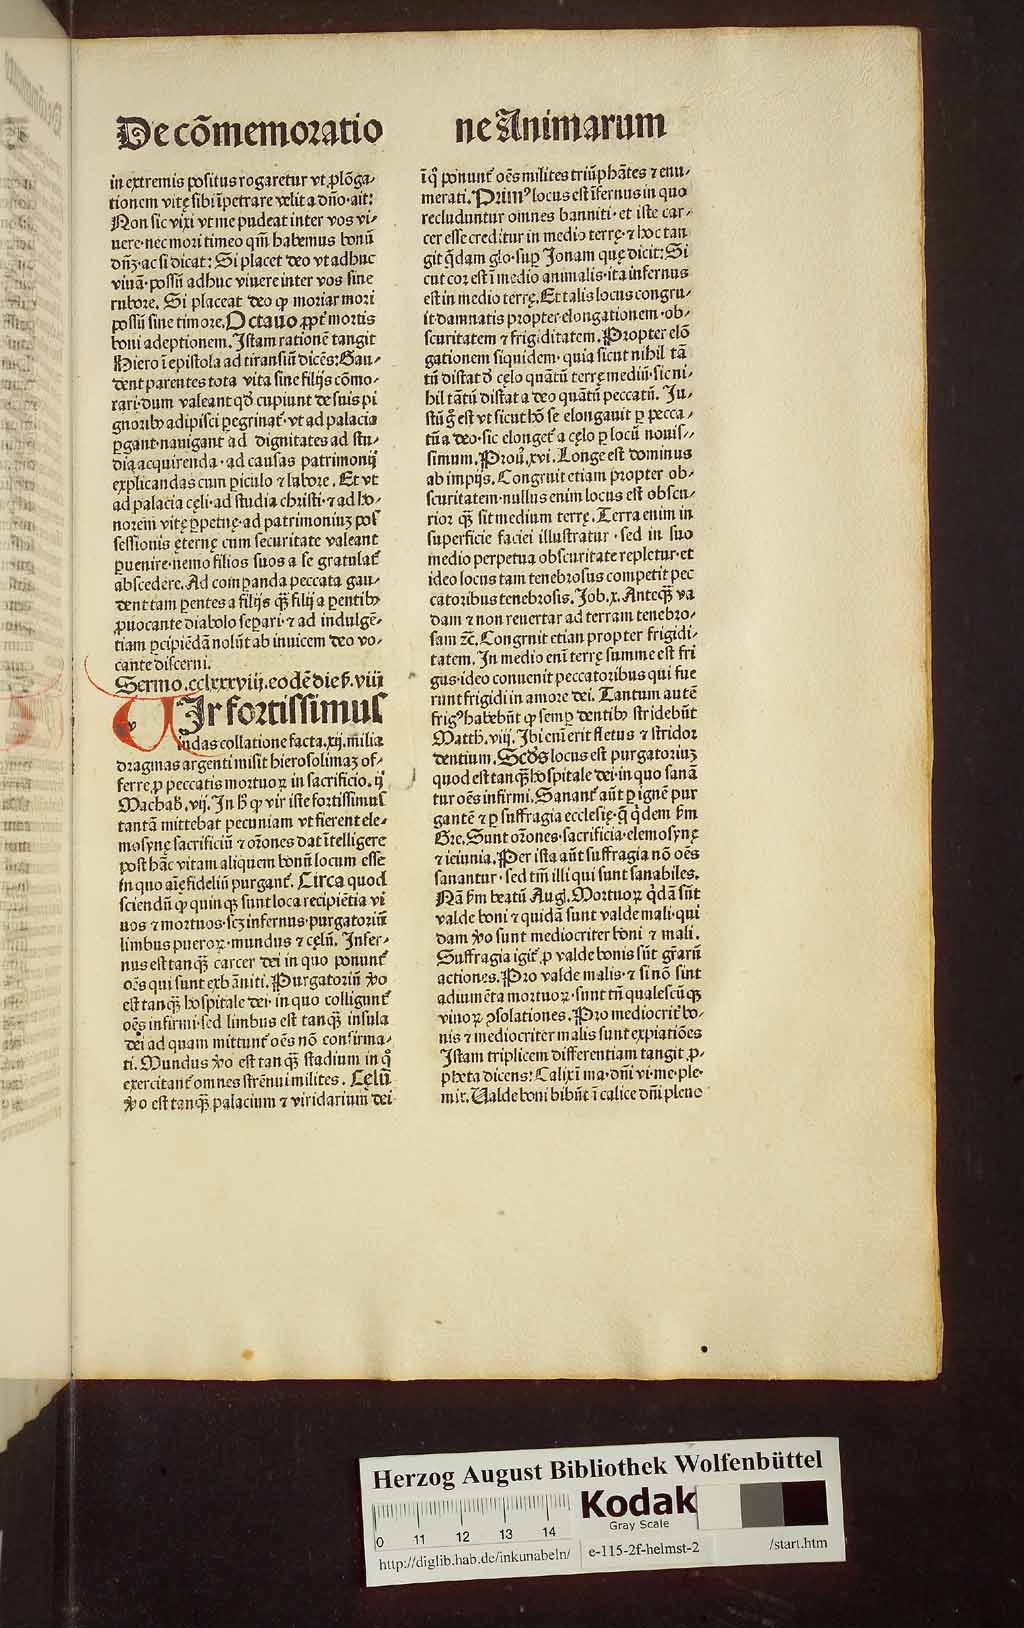 De cōmemoratio
ne Animarum
in extremis positus rogaretur vt ꝓlōga-
tionem vitę sibi īpetrare velit a dño·ait:
Non sic vixi vt me pudeat inter vos vi-
uere·nec mori timeo qm̄ habemus bonū
dn̄ꝫ·ac si dicat: Si placet deo vt adhuc
viuā·possū adhuc viuere inter vos sine
rubore. Si placeat deo ꝙ moriar mori
possū sine timore. Octauo ꝓpt̄ mortis
boni adeptionem. Istam rationē tangit
Hiero ī epistola ad tiransiū dicēs: Gau-
dent parentes tota vita sine filijs cōmo-
rari·dum valeant qd̄ cupiunt de suis pi
gnoribꝰ adipisci ꝑegrinat̄·vt ad palacia
ꝑgant·nauigant ad dignitates ad stu-
dia acquirenda·ad causas patrimonij
explicandas cum ꝑiculo ⁊ labore. Et vt
ad palacia cęli·ad studia christi·⁊ ad ho-
norem vitę ꝑpetuę·ad patrimoniuꝫ pos
sessionis ęternę cum securitate valeant
ꝑuenire·nemo filios suos a se gratulat̄
abscedere. Ad comꝑanda peccata gau-
dent tam ꝑentes a filijs qꝫ̄ filij a ꝑentibꝰ
ꝓuocante diabolo seꝑari·⁊ ad indulgē-
tiam ꝑcipiēdā nolūt ab inuicem deo vo-
cante discerni.
Sermo.cclxxxviij.eodē die ẜ.viij
VIr fortissimus
iudas collatione facta.xij.milia
dragmas argenti misit hierosolimaꝫ of-
ferre ꝓ peccatis mortuoꝝ in sacrificio. ij
Machab̄. vij. In h̄ ꝙ vir iste fortissimus
tantā mittebat pecuniam vt fierent ele-
mosynę sacrificiū ⁊ or̄ones dat ītelligere
post hāc vitam aliquem bonū locum esse
in quo aīe fideliū purgant̄. Circa quod
sciendū ꝙ quinqꝫ sunt loca recipiētia vi
uos ⁊ mortuos·scꝫ infernus·purgatoriū
limbus pueroꝝ·mundus ⁊ cęlū. Infer-
nus est tanqꝫ̄ carcer dei in quo ponunt̄
oēs qui sunt exbāniti. Purgatoriū v̄o
est tanqꝫ̄ hospitale dei·in quo colligunt̄
oēs infirmi·sed limbus est tanqꝫ̄ insula
dei ad quam mittunt̄ oēs nō confirma-
ti. Mundus v̄o est tanqꝫ̄ stadium in qͦ
exercitant̄ omnes strēnui milites. Cęlū
v̄o est tanqꝫ̄ palacium ⁊ viridarium dei
ī qͦ ponunt̄ oēs milites triūphātes ⁊ enu-
merati. Primꝰ locus est īfernus in quo
recluduntur omnes banniti·et iste car-
cer esse creditur in medio terrę·⁊ hoc tan
git q̇dam glo·suꝑ Jonam quę dicit: Si
cut cor est ī medio animalis·ita infernus
est in medio terrę. Et talis locus congru-
it damnatis propter elongationem·ob-
scuritatem ⁊ frigiditatem. Propter elō
gationem siquidem·quia sicut nihil tā
tū distat d̄ cęlo quātū terrę mediū·sic ni-
hil tātū distat a deo quātū peccatū. Ju-
stū ḡ est vt sicut hō se elongauit ꝑ pecca-
tū a deo·sic elonget̄ a cęlo ꝑ locū nouis-
simum. Prou̅. xvi. Longe est dominus
ab impijs. Congruit etiam propter ob-
scuritatem·nullus enim locus est obscu-
rior qꝫ̄ sit medium terrę. Terra enim in
superficie faciei illustratur·sed in suo
medio perpetua obscuritate repletur·et
ideo locus tam tenebrosus competit pec
catoribus tenebrosis. Job. x. Anteqꝫ̄ va
dam ⁊ non reuertar ad terram tenebro-
sam ⁊c̄. Congruit etian propter frigidi-
tatem. In medio enī terrę summe est fri
gus·ideo conuenit peccatoribus qui fue
runt frigidi in amore dei. Tantum autē
frigꝰ habebūt ꝙ semꝑ dentibꝰ stridebūt
Matth. viij. Ibi enī erit fletus ⁊ stridor
dentium. Scd̄s locus est purgatoriuꝫ
quod est tanqꝫ̄ hospitale dei·in quo sanā
tur oēs infirmi. Sanant̄ aūt ꝑ ignē pur
gantē ⁊ ꝑ suffragia ecclesię·q̄ q̇dem ẜm
Gre. Sunt or̄ones·sacrificia·elemosynę
⁊ ieiunia. Per ista aūt suffragia nō oēs
sanantur·sed tm̄ illi qui sunt sanabiles.
Nā ẜm beatū Aug. Mortuoꝝ q̇dā sūt
valde boni ⁊ quidā sunt valde mali·qui
dam v̄o sunt mediocriter boni ⁊ mali.
Suffragia igit̄ ꝓ valde bonis sūt gr̄arū
actiones. Pro valde malis·⁊ si nō sint
adiumēta mortuoꝝ·sunt tn̄ qualescūqꝫ
viuoꝝ ꝯsolationes. Pro mediocrit̄ bo-
nis ⁊ mediocriter malis sunt expiatiōes
Istam triplicem differentiam tangit ꝓ-
pheta dicens: Calix ī ma·dn̄i vi·me·ple·
mix. Valde boni bibūt ī calice dn̄i pleno
Herzog August Bibliothek Wolfenbüttel
Kodak
Gray Scale
0 11 12 13 14
http://diglib.hab.de/inkunabeln/
e-115-2f-helmst-2
/start.htm